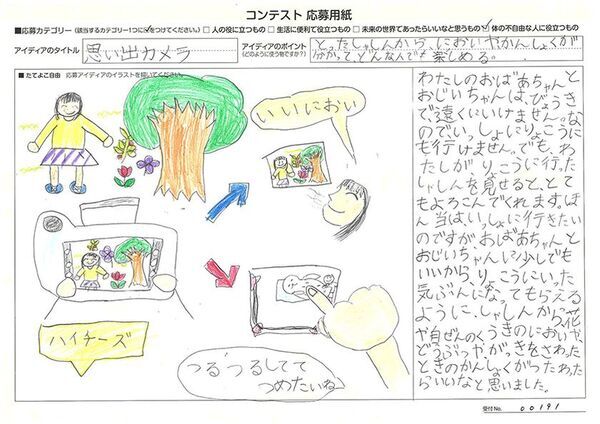 コンテスト 応募用紙
■応募カテゴリー(該当するカテゴリー1つに✓をつけてください。) □人の役に立つもの □生活に便利で役立つもの □未来の世界であったらいいなと思うもの ☑体の不自由な人に役立つもの
アイディアのタイトル 思い出カメラ
アイディアのポイント
(どのように使う物ですか?)
とったしゃしんから、においやかんしょくが
分かって、どんな人でも楽しめる。
■たてよこ自由 応募アイディアのイラストを描いてください。
いいにおい
ハイチーズ
つるつるしてて
つめたいね
わたしのおばあちゃんと
おじいちゃんは、びょうき
で遠くにいけません。な
のでいっしょにりょこうに
も行けません。でも、わ
たしがりょこうに行った
しゃしんを見せると、とて
もよろこんでくれます。ほ
ん当はいっしょに行きたい
のですが、おばあちゃんと
おじいちゃんに少しでも
いいから、りょこうにいった
気ぶんになってもらえる
ように、しゃしんから、花
や自ぜんのくうきのにおいや、
どうぶつや、がっきをさわった
ときのかんしょくがつたわった
らいいなと思いました。
受付No. 00191